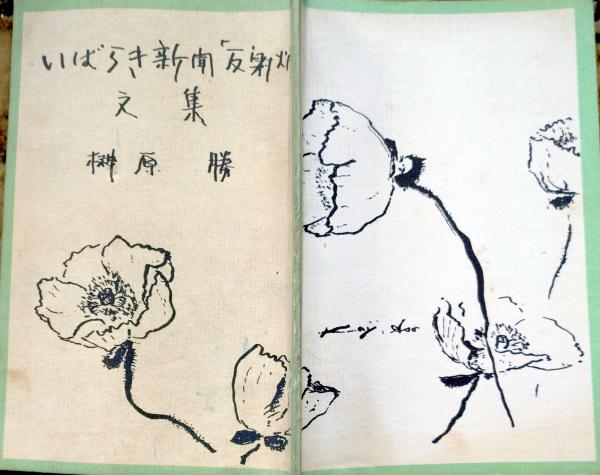 いばらき新聞「反射炉
文集
榊原 勝